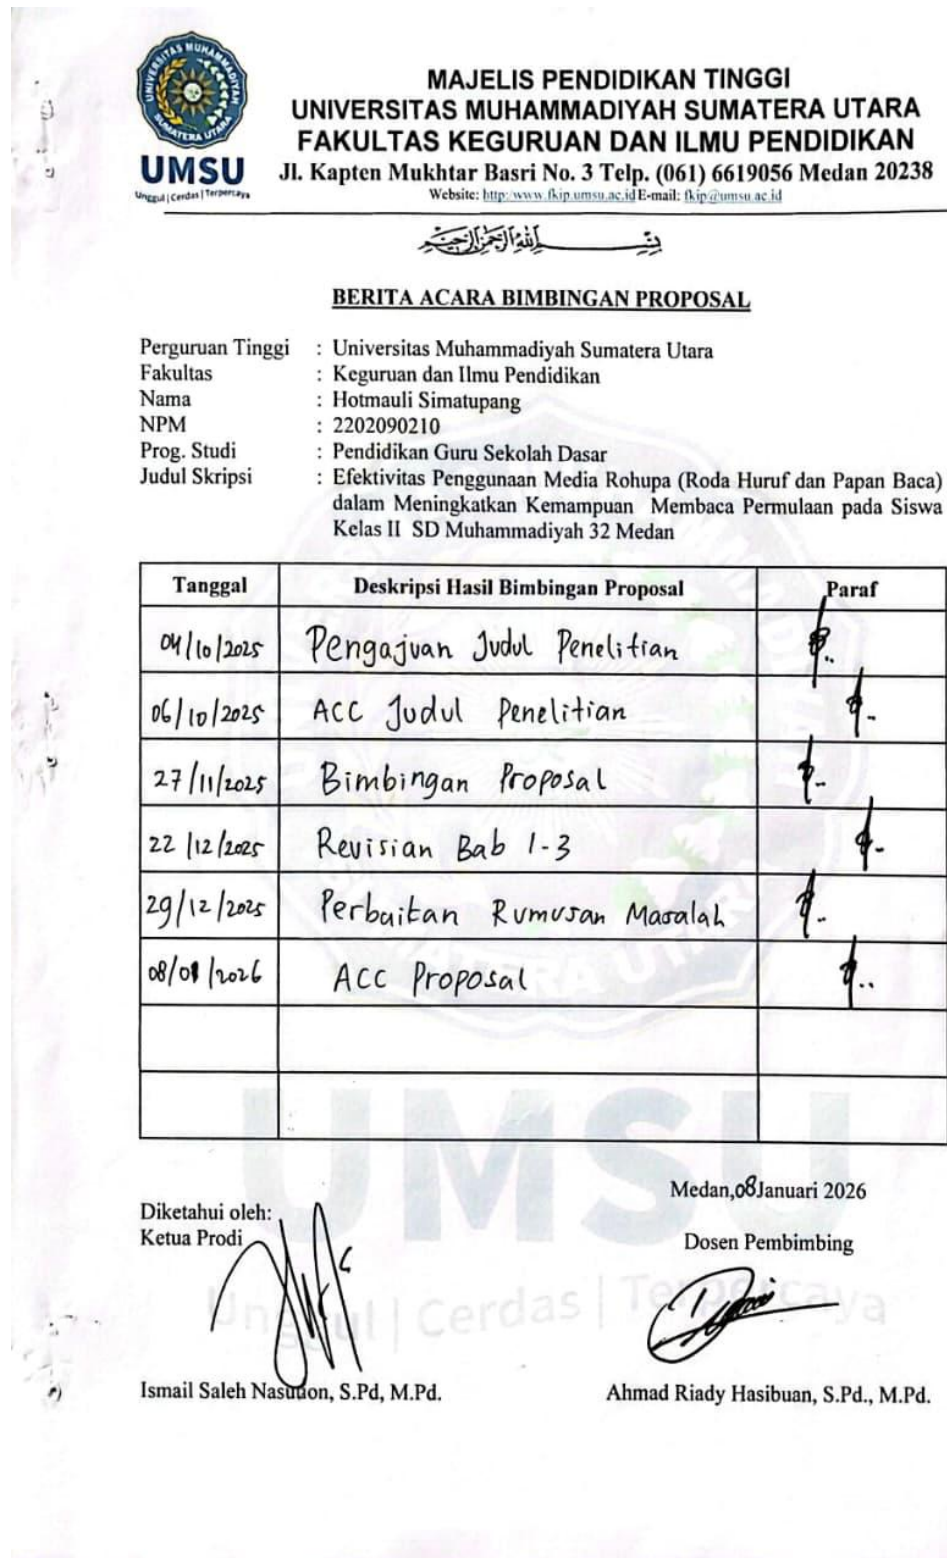 MAJELIS PENDIDIKAN TINGGI
UNIVERSITAS MUHAMMADIYAH SUMATERA UTARA
FAKULTAS KEGURUAN DAN ILMU PENDIDIKAN
Jl. Kapten Mukhtar Basri No. 3 Telp. (061) 6619056 Medan 20238
Website: http://www.fkip.umsu.ac.id E-mail: fkip@umsu.ac.id
UNIVERSITAS MUHAMMADIYAH
SUMATERA UTARA
UMSU
Unggul | Cerdas | Terpercaya
بِسْمِ اللَّهِ الرَّحْمَٰنِ الرَّحِيمِ
BERITA ACARA BIMBINGAN PROPOSAL
Perguruan Tinggi : Universitas Muhammadiyah Sumatera Utara
Fakultas : Keguruan dan Ilmu Pendidikan
Nama : Hotmauli Simatupang
NPM : 2202090210
Prog. Studi : Pendidikan Guru Sekolah Dasar
Judul Skripsi : Efektivitas Penggunaan Media Rohupa (Roda Huruf dan Papan Baca)
dalam Meningkatkan Kemampuan Membaca Permulaan pada Siswa
Kelas II SD Muhammadiyah 32 Medan
Tanggal Deskripsi Hasil Bimbingan Proposal Paraf
04/10/2025 Pengajuan Judul Penelitian
06/10/2025 ACC Judul Penelitian
27/11/2025 Bimbingan Proposal
22/12/2025 Revisian Bab 1-3
29/12/2025 Perbaikan Rumusan Masalah
08/01/2026 ACC Proposal
UMSU
Unggul | Cerdas | Terpercaya
Medan, 08 Januari 2026
Diketahui oleh:
Ketua Prodi Dosen Pembimbing
Ismail Saleh Nasution, S.Pd, M.Pd. Ahmad Riady Hasibuan, S.Pd., M.Pd.